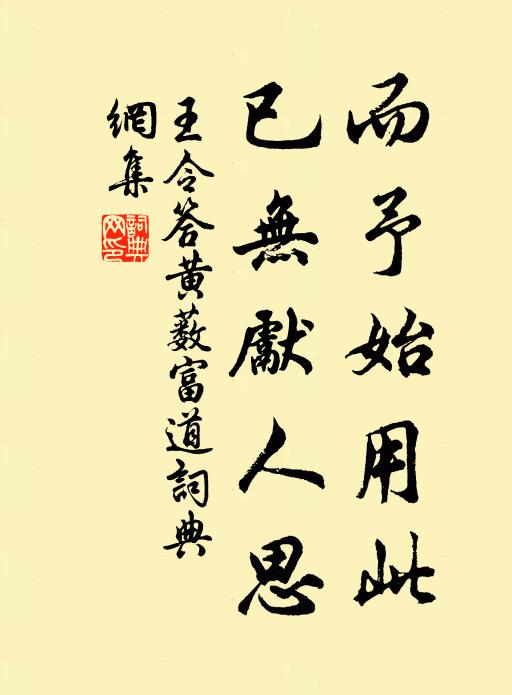 而予始用此
已無獻人思
王令答黄藪富道詞典
網集
詞典網印